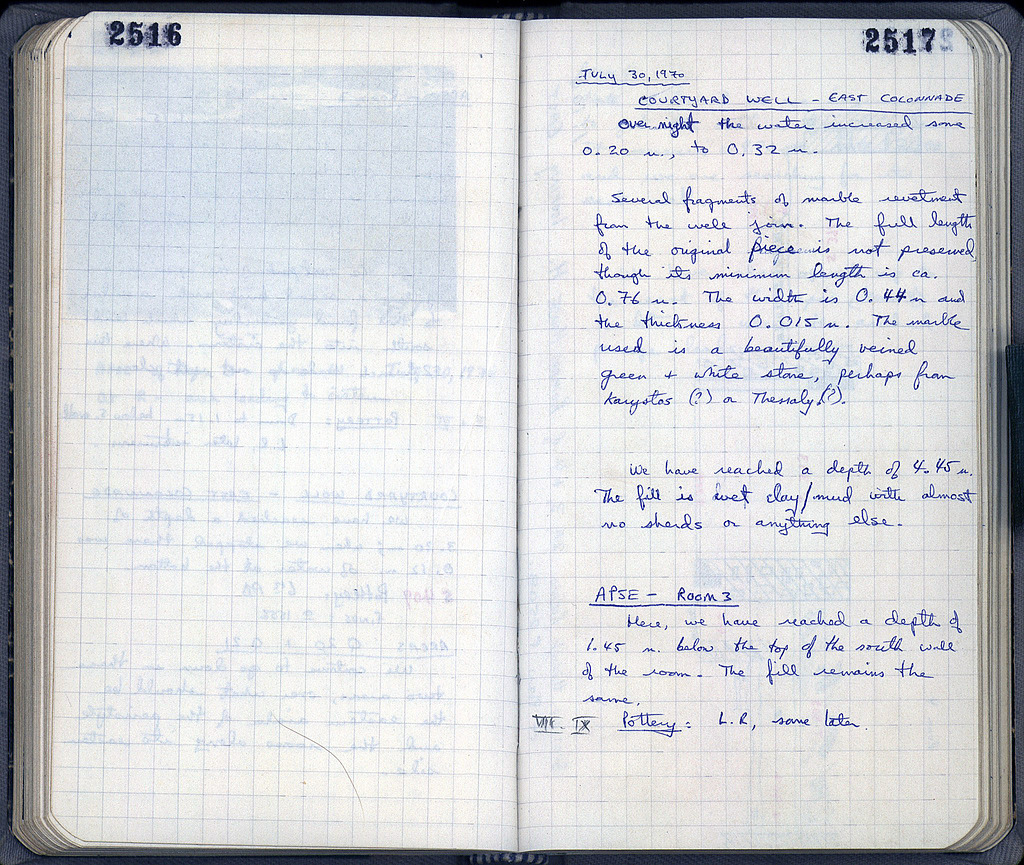 2516
2517
JULY 30, 1970
COURTYARD WELL - EAST COLONNADE
Over night the water increased some
0.20 m., to 0.32 m.
Several fragments of marble revetment
from the well join. The full length
of the original piece is not preserved,
though its minimum length is ca.
0.76 m. The width is 0.44 m and
the thickness 0.015 m. The marble
used is a beautifully veined
green + white stone, perhaps from
Karystos (?) or Thessaly (?).
We have reached a depth of 4.45 m.
The fill is wet clay/mud with almost
no sherds or anything else.
APSE - ROOM 3
Here, we have reached a depth of
1.45 m. below the top of the south wall
of the room. The fill remains the
same.
VIII. IX Pottery: L.R, some later.